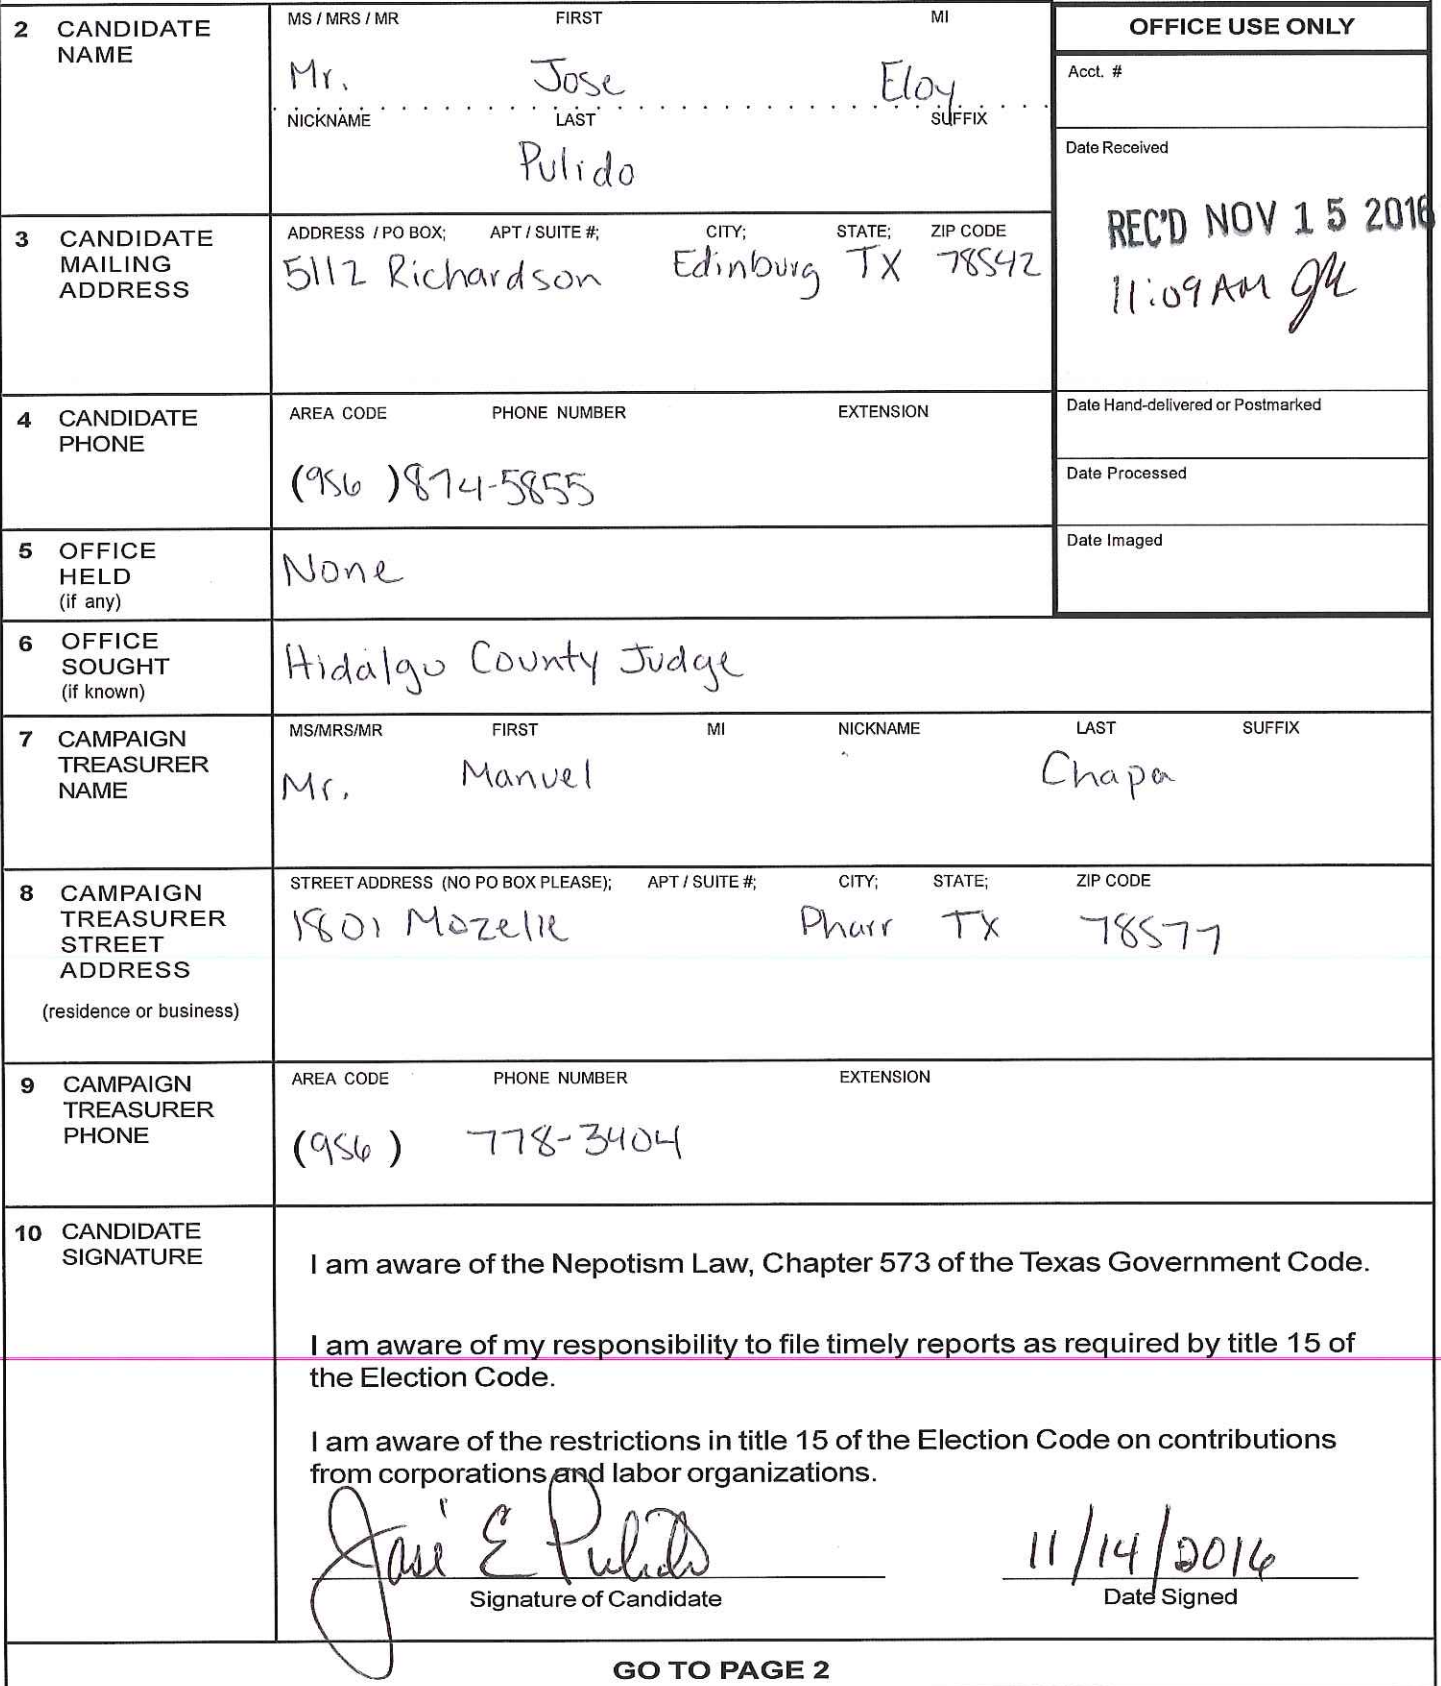 2 CANDIDATE NAME
MS / MRS / MR FIRST MI
Mr. Jose Eloy
NICKNAME LAST SUFFIX
Pulido
OFFICE USE ONLY
Acct. #
Date Received
REC'D NOV 15 2016
11:09 AM
Date Hand-delivered or Postmarked
Date Processed
Date Imaged
3 CANDIDATE MAILING ADDRESS
ADDRESS / PO BOX; APT / SUITE #; CITY; STATE; ZIP CODE
5112 Richardson Edinburg TX 78542
4 CANDIDATE PHONE
AREA CODE PHONE NUMBER EXTENSION
(956 ) 874-5855
5 OFFICE HELD (if any)
None
6 OFFICE SOUGHT (if known)
Hidalgo County Judge
7 CAMPAIGN TREASURER NAME
MS/MRS/MR FIRST MI NICKNAME LAST SUFFIX
Mr. Manuel Chapa
8 CAMPAIGN TREASURER STREET ADDRESS
(residence or business)
STREET ADDRESS (NO PO BOX PLEASE); APT / SUITE #; CITY; STATE; ZIP CODE
1801 Mozelle Pharr TX 78577
9 CAMPAIGN TREASURER PHONE
AREA CODE PHONE NUMBER EXTENSION
(956 ) 778-3404
10 CANDIDATE SIGNATURE
I am aware of the Nepotism Law, Chapter 573 of the Texas Government Code.
I am aware of my responsibility to file timely reports as required by title 15 of
the Election Code.
I am aware of the restrictions in title 15 of the Election Code on contributions
from corporations and labor organizations.
José E Pulido 11/14/2016
Signature of Candidate Date Signed
GO TO PAGE 2